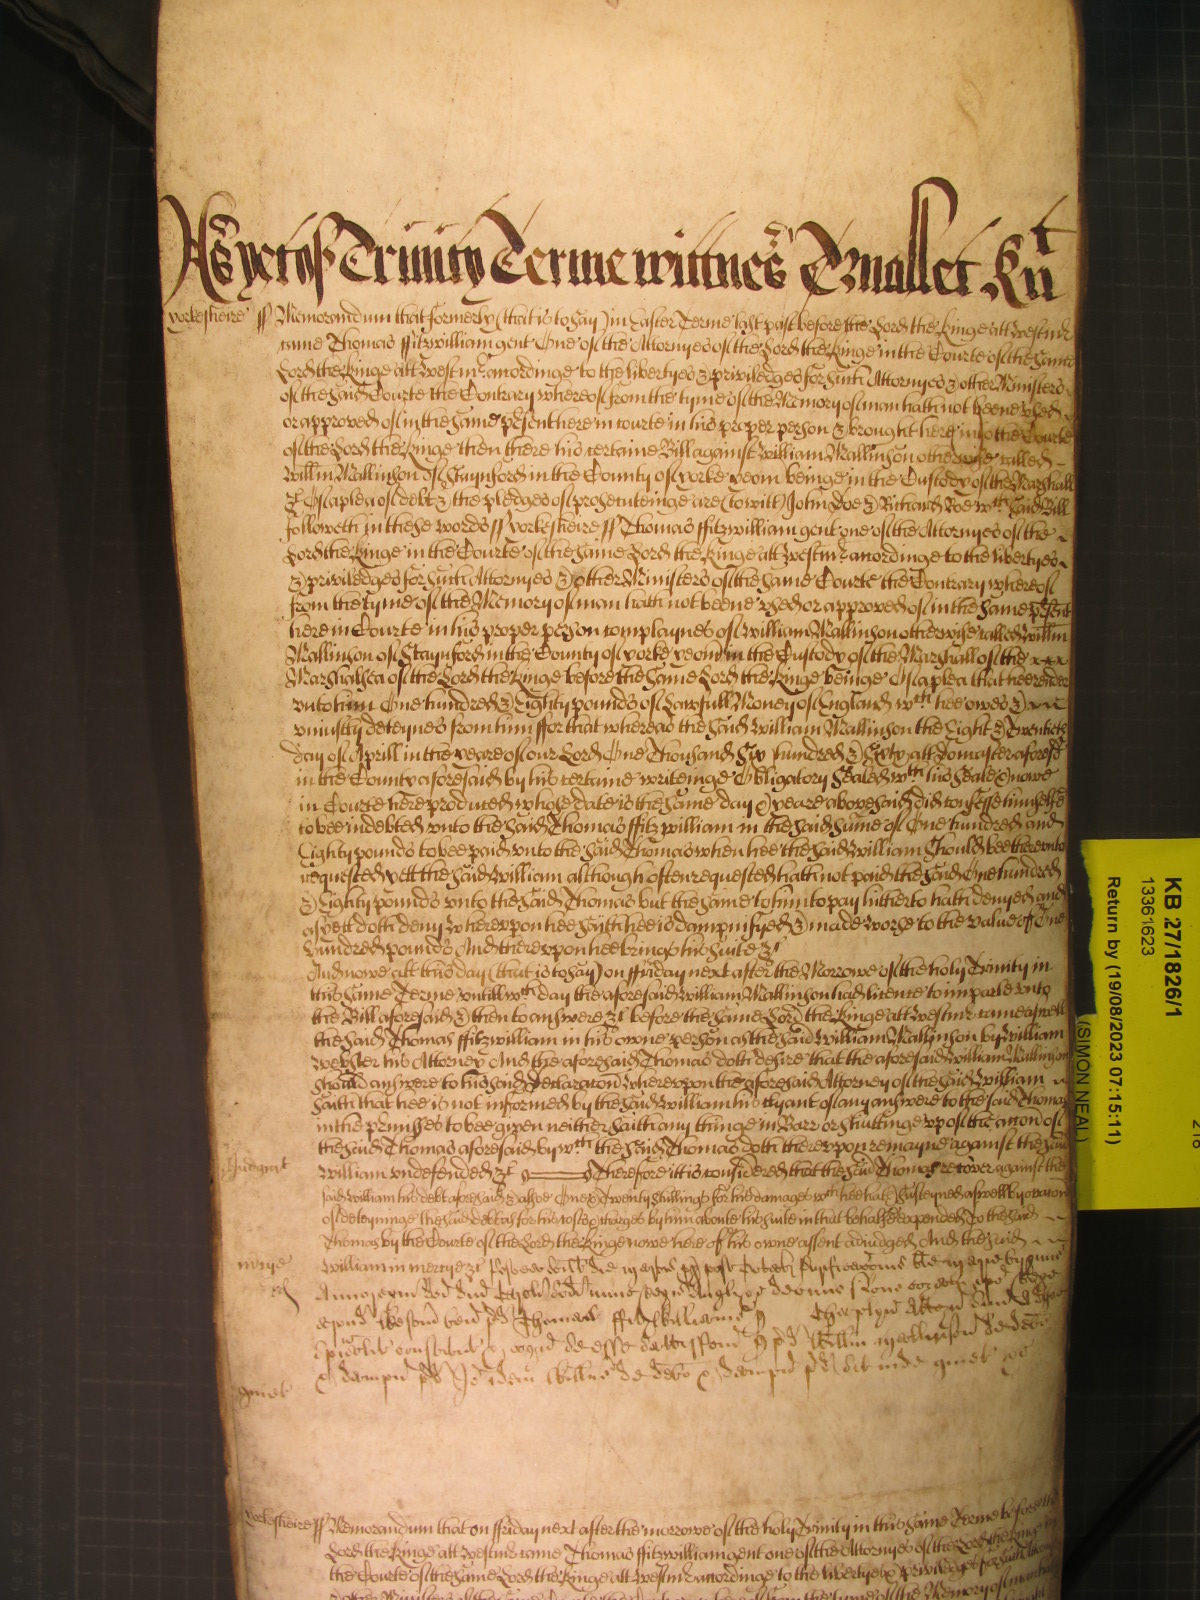 As yet of Trinity Terme wittnes T Mallet Knt
Yorkesheire ss Memorandum that formerly (that is to say) in Easter Terme last past before the Lord the Kinge att Westmr
came Thomas ffitzwilliam gent One of the Attornyes of the Lord the Kinge in the Courte of the same
Lord the Kinge att Westmr accordinge to the libertyes & priviledges for such Attornyes & other Ministers
of the said Courte the Contrary whereof from the tyme of the Memory of man hath not beene used
or approved of in the same present here in courte in his proper person & brought here into the Courte
of the Lord the Kinge then there his certaine Bill against William Mallinson otherwise called
Willm Mallinson of Staynford in the County of Yorke yeom beinge in the Custody of the Marshall
&c Of a plea of debt & the pledges of prosecuteinge are (to witt) John Doe & Richard Roe wch said Bill
followeth in these words ss Yorkesheire ss Thomas ffitzwilliam gent one of the Attornyes of the
Lord the Kinge in the Courte of the same Lord the Kinge att Westmr accordinge to the libertyes
& priviledges for such Attornyes & other Ministers of the same Courte the Contrary whereof
from the tyme of the Memory of man hath not beene used or approved of in the same present
here in Courte in his proper person complaynes of William Mallinson otherwise called Willm
Mallinson of Staynford in the County of Yorke yeom in the Custody of the Marshall of the
Marshalsea of the Lord the Kinge before the same Lord the Kinge beinge Of a plea that hee render
unto him One hundred & Eighty pounds of Lawfull Money of England wch hee owes &
uniustly deteynes from him ffor that whereas the said William Mallinson the Eight & Twentieth
day of Aprill in the yeare of our Lord One Thousand Six hundred & Sixty att Doncaster aforesd
in the County aforesaid by his certaine writeinge Obligatory Sealed wth his Seale & nowe
in Courte here produced whose date is the same day & yeare abovesaid did confesse himselfe
to bee indebted unto the said Thomas ffitzwilliam in the said summe of One hundred and
Eighty pounds to bee paid unto the said Thomas when hee the said William should bee thereunto
requested yett the said William although often requested hath not paid the said One hundred
& Eighty pounds unto the said Thomas but the same to him to pay hitherto hath denyed and
as yett doth deny whereupon hee saith hee is dampnifyed & made worse to the value of One
hundred pounds And thereupon hee brings his suite &c
And nowe att this day (that is to say) on ffriday next after the Morrowe of the holy Trinity in
this same Terme untill wch day the aforesaid William Mallinson had licence to imparle unto
the Bill aforesaid & then to answere &c before the same Lord the Kinge att Westmr came aswell
the said Thomas ffitzwilliam in his owne person as the said William Mallinson by William
Webster his Attorney And the aforesaid Thomas doth desire that the aforesaid William Mallinson
should answere to his said Declaracon Whereupon the aforesaid Attorney of the said William
saith that hee is not informed by the said William his clyant of any answere to the said Thomas
in the premises to bee given neither saith any thinge in Barr or shuttinge up of the accon of
the said Thomas aforesaid by wch the said Thomas doth thereupon remayne against the said
Judgmt William undefended &c Therefore itt is considered that the said Thomas recover against the
said William his debt aforesaid & alsoe One & Twenty Shillings for his damages wch hee hath susteyned aswell by occasion
of deteyninge the said debt as for his costs & charges by him aboute his suite in that behalfe expended to the said
Thomas by the Courte of the Lord the Kinge nowe here of his owne assent adiudged And the said
mercye William in mercye &c
Thomas ffitzWilliams
quiet
Yorkesheire ss Memorandum that on ffriday next after the morrowe of the holy Trinity in this same Terme before the
Lord the Kinge att Westmr came Thomas ffitzwilliam gent one of the Attornyes of the Lord the Kinge in
the Courte of the same Lord the Kinge att Westmr accordinge to the libertyes & priviledges for such
KB 27/1826/1
13361623
Return by (19/08/2023 07:15:11)
(SIMON NEAL)